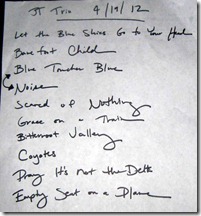 JT Trio 4/19/12
Let the Blue Skies Go to Your Head
Barefoot Child
Blue Touches Blue
Noise
Scared of Nothing
Grace on a Train
Bitterroot Valley
Coyotes
Pray It's Not the Delta
Empty Seat on a Plane